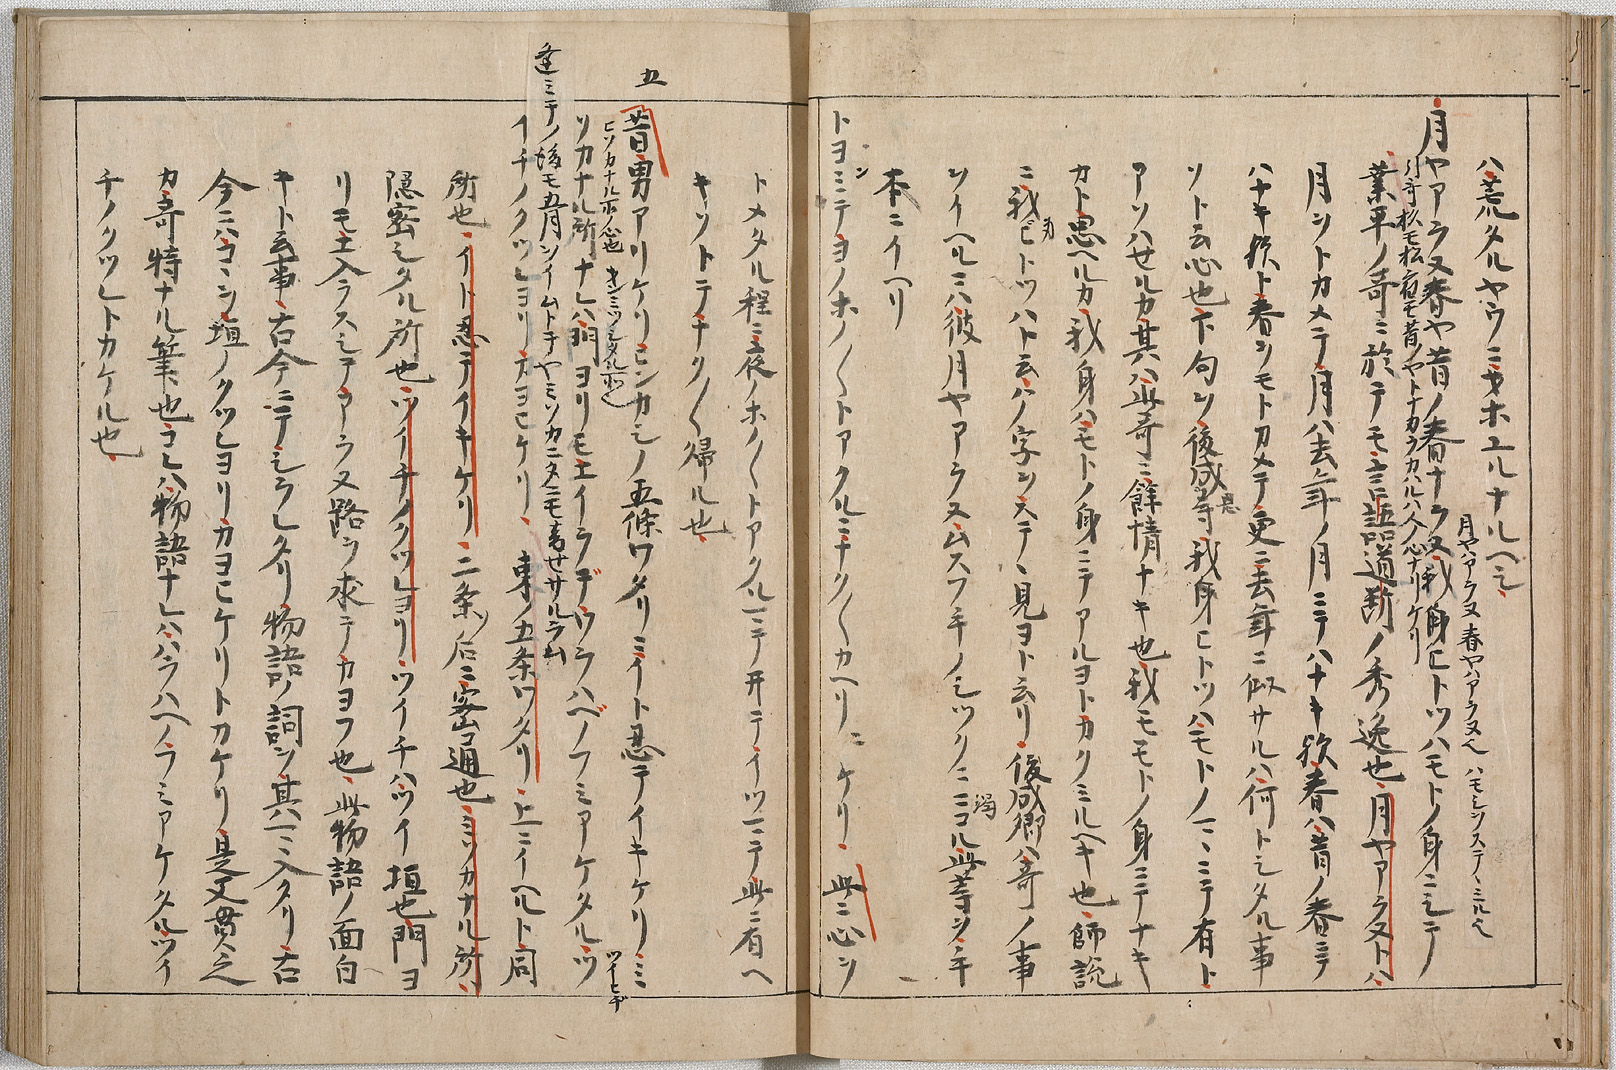 ハ荒タルヤウニオホエルナルヘシ
月ヤアラヌ春ヤ昔ノ春ナラヌ我身ヒトツハモトノ身ニシテ
月ヤハアラヌ春ヤハアラヌ也ハモシヲステヽミル也
引哥杦モ松モ昔ノヤトナカラカハルハ人ノ心ナリケリ
業平ノ哥ニ於テモ言語道断ノ秀逸也月ヤアラヌトハ
月ヲトカメテ月ハ去年ノ月ニテハナキ欤春ハ昔ノ春ニテ
ハナキ欤ト春ヲモトカメテ更ニ去年ニ似サルハ何トシタル事
ソト云心也下句ヲ後成等我身ヒトツハモトノ一ニテ有ト
アソハセルカ其ハ此哥ニ餘情ナキ也我モモトノ身ニテナキ
カト思ヘルカ我身ハモトノ身ニテアルヨトカクミルヘキ也師説
ニ我ヒトツハト云ハノ字ヲステヽ見ヨト云リ後成卿ハ哥ノ事
ヲイヘルニハ彼月ヤアラヌムスフ手ノシツクニニコル此等ヲ
本ニイヘリ
トヨミテヨノホノ〱トアクルニナク〱カヘリニケリ此ニ心ヲ
トメタル程ニ夜ノホノ〱トアクルニテ
キソトテナク〱帰ル也
五
昔男アリケリヒンカシノ五條ワタリニイト忍テイキケリミ
ヒソカナル所ノ心也
ソカナル所ナレハ門ヨリモエイラデワラハベノフミアケタルツ
ツイヒヂ
イチノクツレヨリカヨヒケリ東ノ五条ワタリ上ニイヘルト同
所也イト忍テイキケリ二条ノ后ニ密通也ミソカナル所
隠密シタル所也ツイチノクツレヨリツイチハツイ垣也門ヨ
リモエ入ラスシテアラヌ路ヲ求テカヨフ也此物語ノ面白
キト云事古今ニテシラレタリ物語ノ詞ヲ其一ニ入タリ古
今ニハコヽヲ垣ノクツレヨリカヨヒケリトカケリ是又貫之
カ奇特ナル筆也コレハ物語ナレハワラハヘノフミアケタルツイ
チノクツレトカケル也